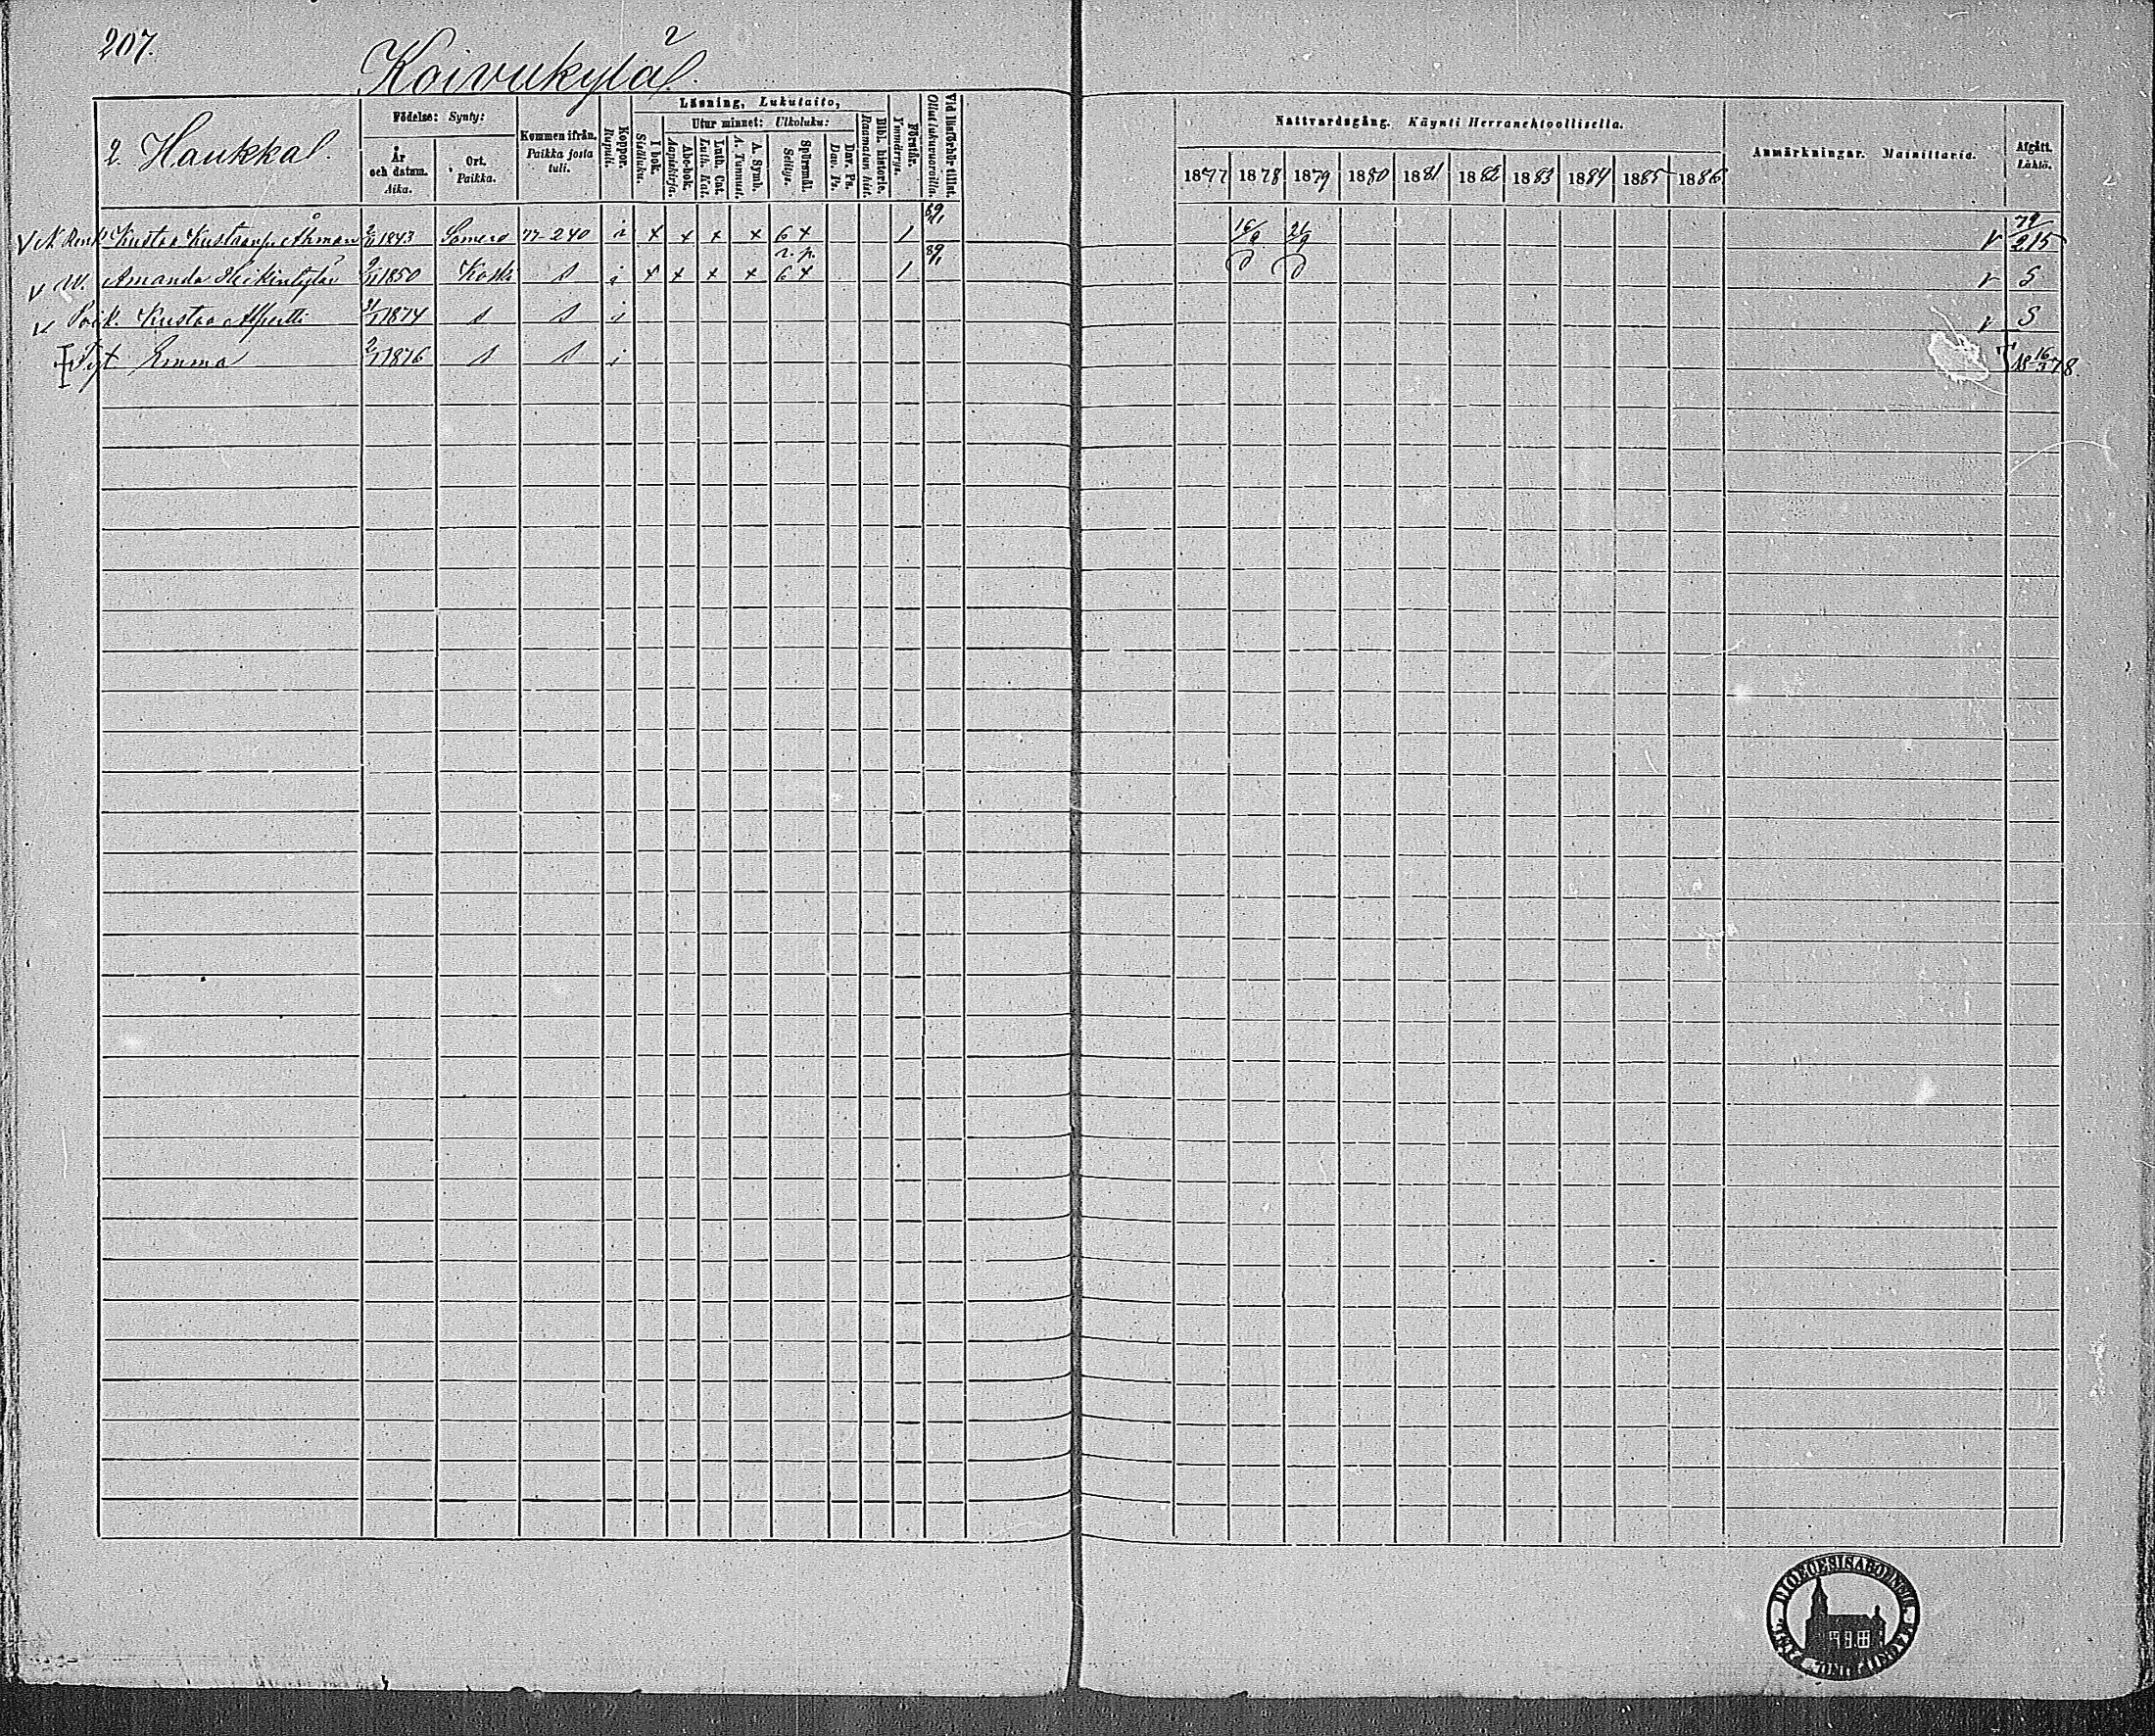 207.
Koivukylä 2
2. Haukkal.
Födelse: Synty:
År och datum. Aika.
Ort. Paikka.
Kommen ifrån. Paikka josta tuli.
Koppor. Rupuli.
Läsning, Lukutaito,
I bok. Sisäluku.
Utur minnet: Ulkoluku:
Abc-bok. Aapiskirja.
Luth. Cat. Luth. Kat.
A. Symb. A. Tunnust.
Spörsmål. Selitys.
Dav. Ps. Dav. Ps.
Bibl. historie. Raamatun hist.
Förstår. Ymmärrys.
Vid läsförhör tillst. Ollut lukuvuoroilla.
Nattvardsgång. Käynti Herranehtoollisella.
1877 1878 1879 1880 1881 1882 1883 1884 1885 1886
Anmärkningar. Mainittavia.
Afgått. Lähtö.
Kustaa Kustaanp. Åhman 1843 Somero 77-240 i x x x x 6 x 1 16/9 21/9 v 79/215
v W. Amanda Heikintytär 1850 Koski s i x x x x 6 x 1 v S
v Poik. Kustaa Alfertti 1874 s s i v S
Tyt. Emma 1876 s s i 18 16/3 78.